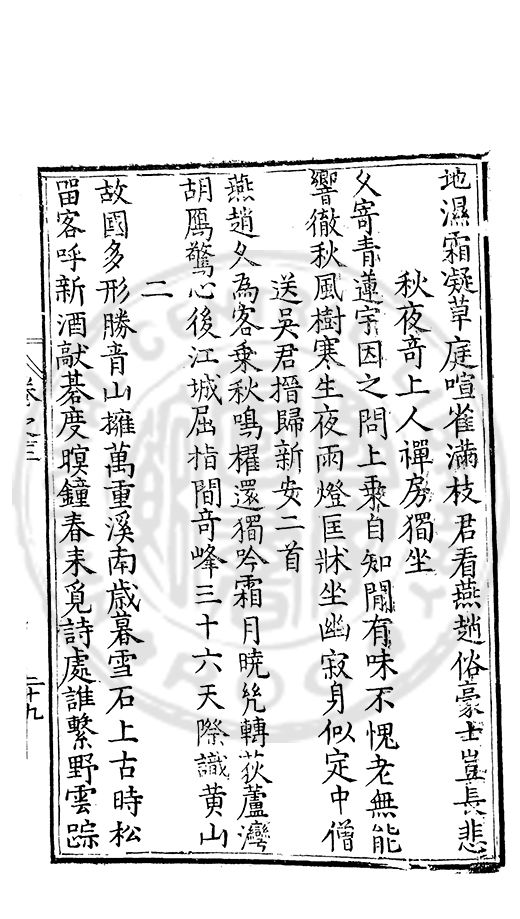 地濕霜凝草庭喧雀滿枝君看燕趙俗豪士豈長悲
秋夜奇上人禪房獨坐
久寄青蓮宇因之問上乘自知閒有味不愧老無能
響徹秋風樹寒生夜雨燈匡牀坐幽寂身似定中僧
送吳君搢歸新安二首
燕趙久為客乘秋鳴櫂還獨吟霜月曉幾轉荻蘆灣
胡鴈驚心後江城屈指間奇峰三十六天際識黃山
二
故國多形勝青山擁萬重溪南歲暮雪石上古時松
留客呼新酒敲碁度暝鐘春來覓詩處誰繫野雲踪
卷之三
二十九